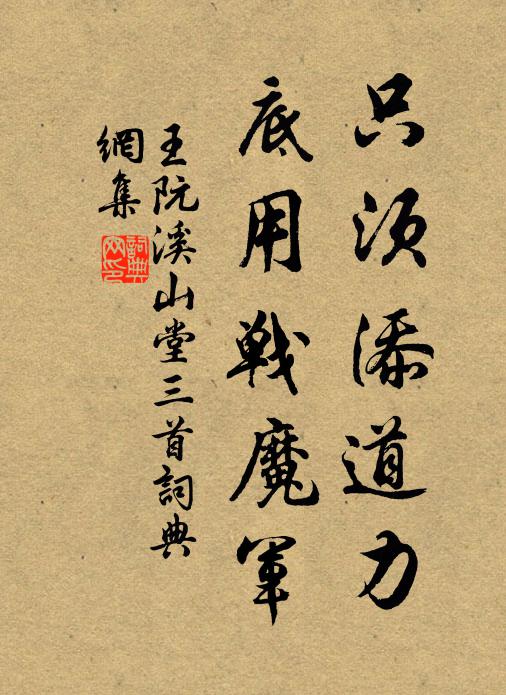 只須添道力
底用戰魔軍
王阮溪山堂三首詞典
網集
詞典网印